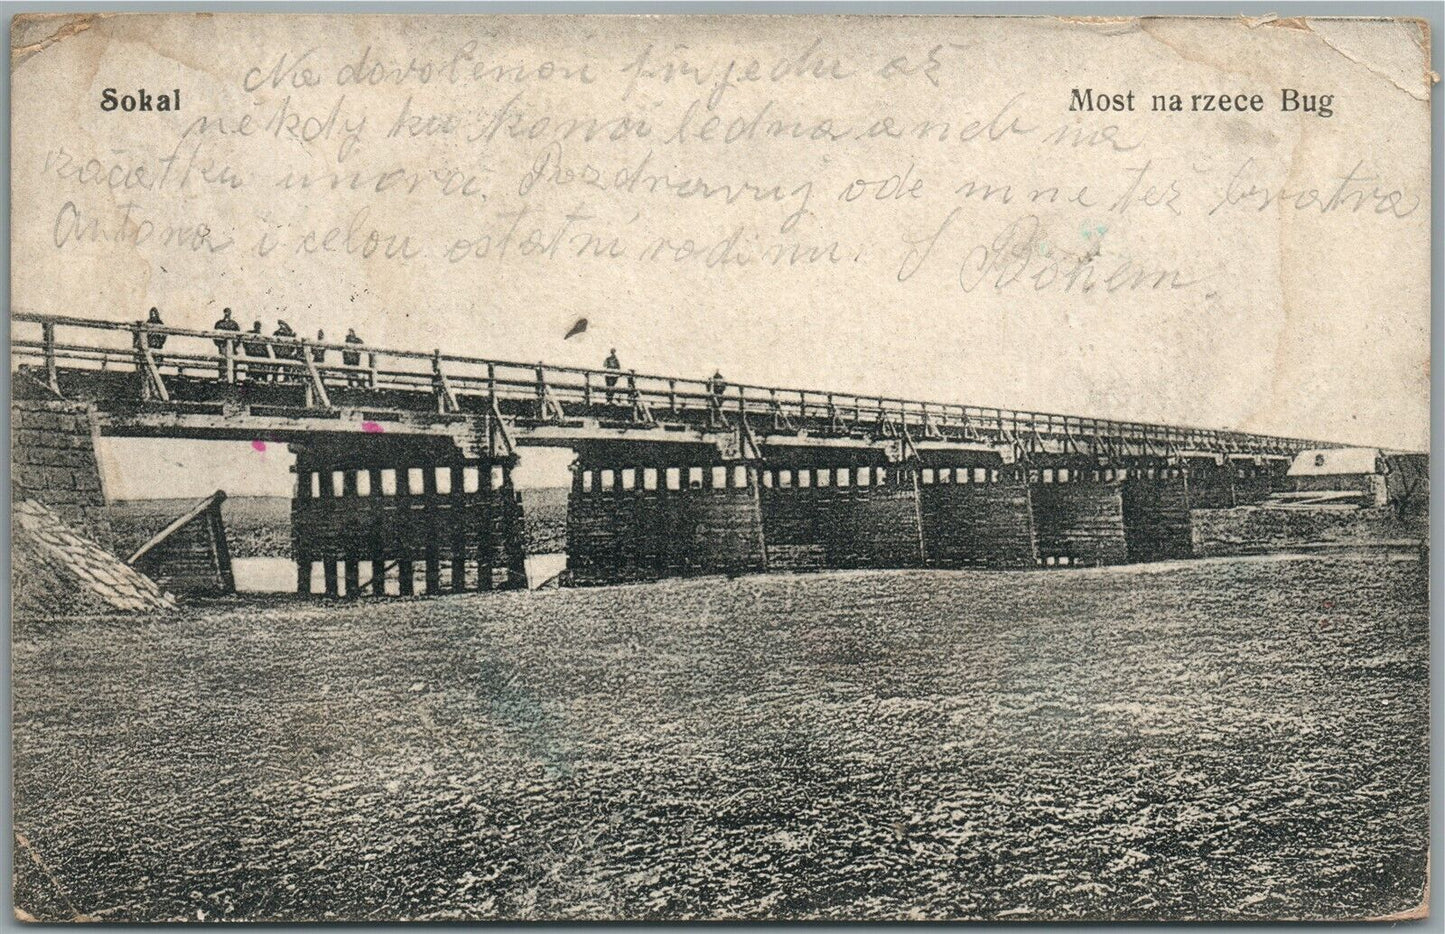 Sokal
Most na rzece Bug
Na dovolenou přijedu až
někdy ku konci ledna aneb na
začátku února. Pozdravuj ode mne též bratra
Antona i celou ostatní rodinu. S Bohem.